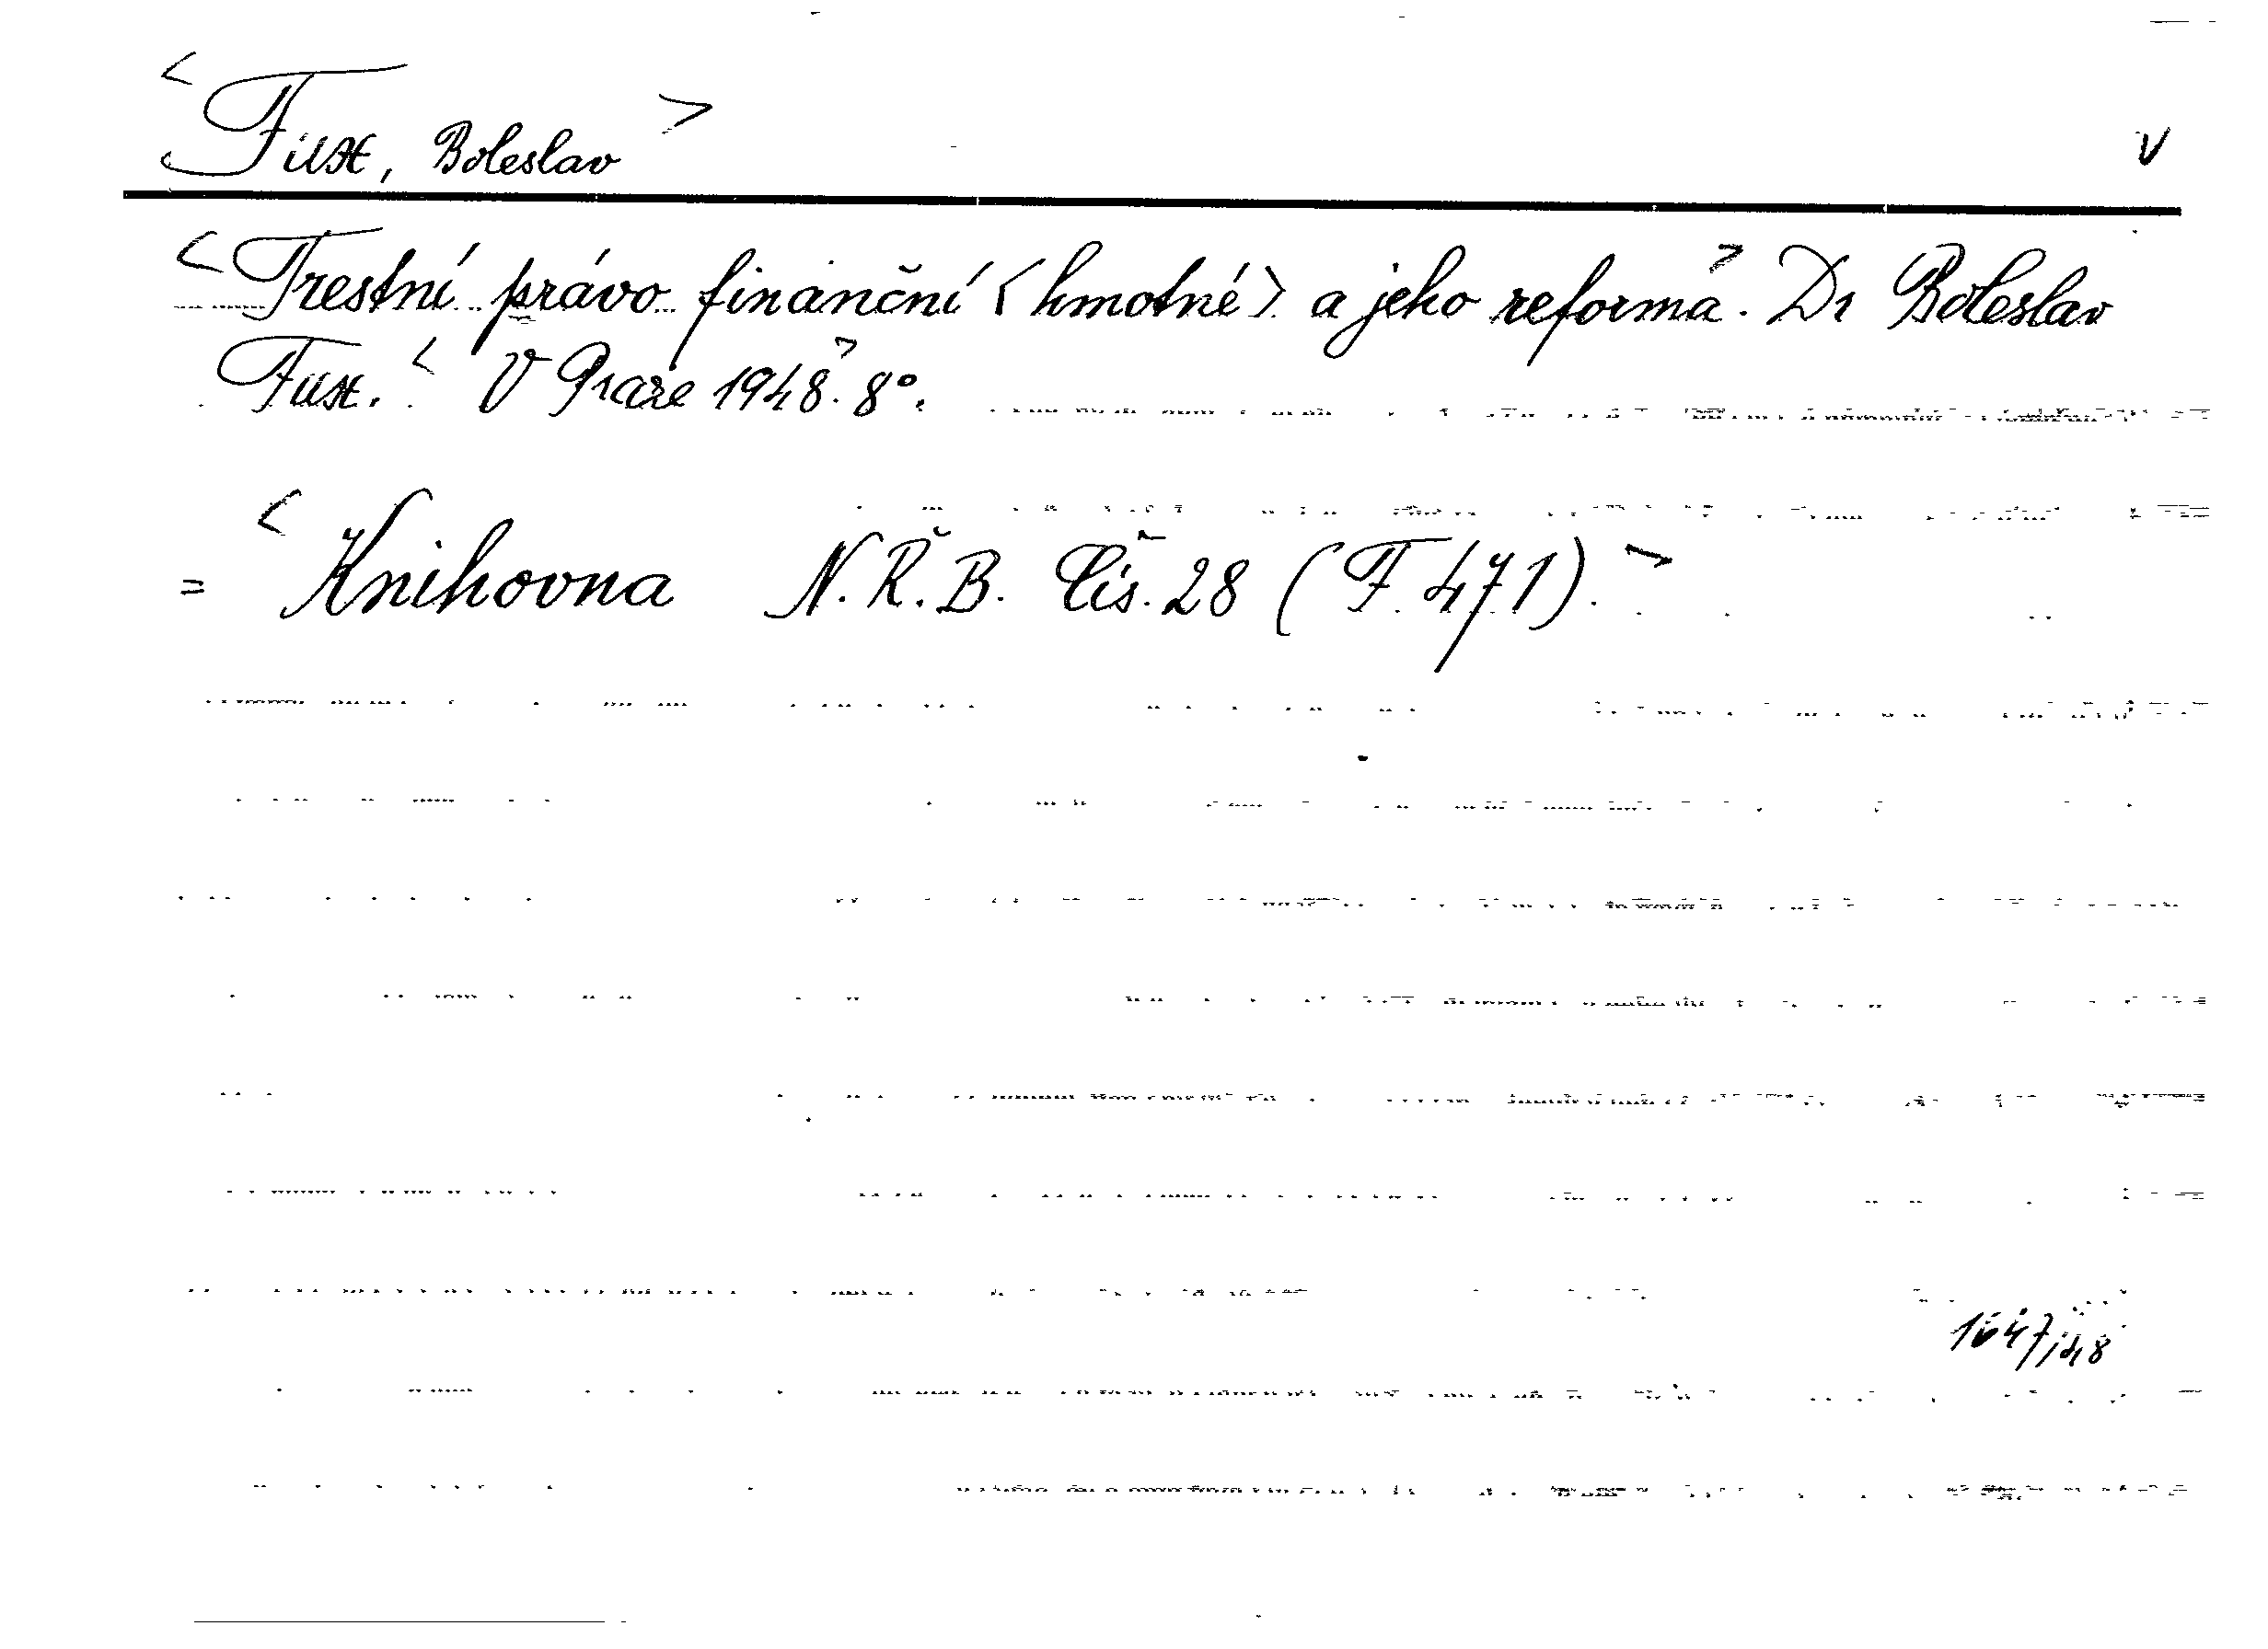 < Fux, Boleslav > V
< Trestní právo finanční (hmotné) a jeho reforma. > Dr Boleslav
Fux. < V Praze 1948. > 8°.
= < Knihovna N. Ř. B. Čís. 28 (F 471). >
1647/48